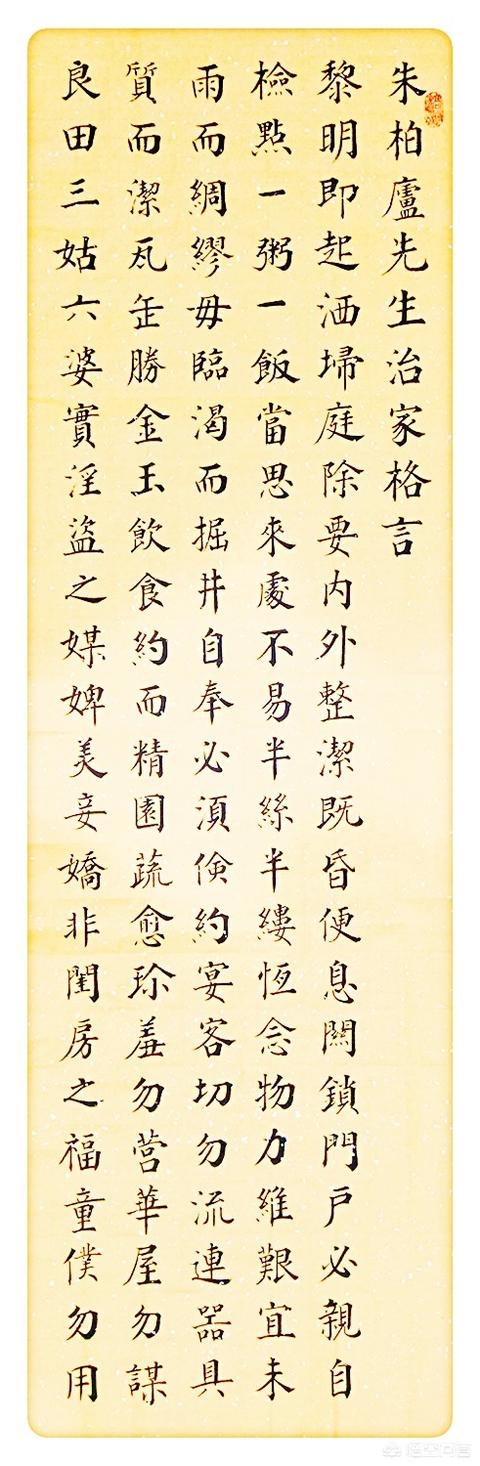 朱柏廬先生治家格言
黎明即起洒埽庭除要内外整潔既昏便息關鎖門戶必親自
檢點一粥一飯當思來處不易半絲半縷恆念物力維艱宜未
雨而綢繆毋臨渴而掘井自奉必須儉約宴客切勿流連器具
質而潔瓦缶勝金玉飲食約而精園蔬愈珍羞勿營華屋勿謀
良田三姑六婆實淫盜之媒婢美妾嬌非閨房之福童僕勿用
悟空问答